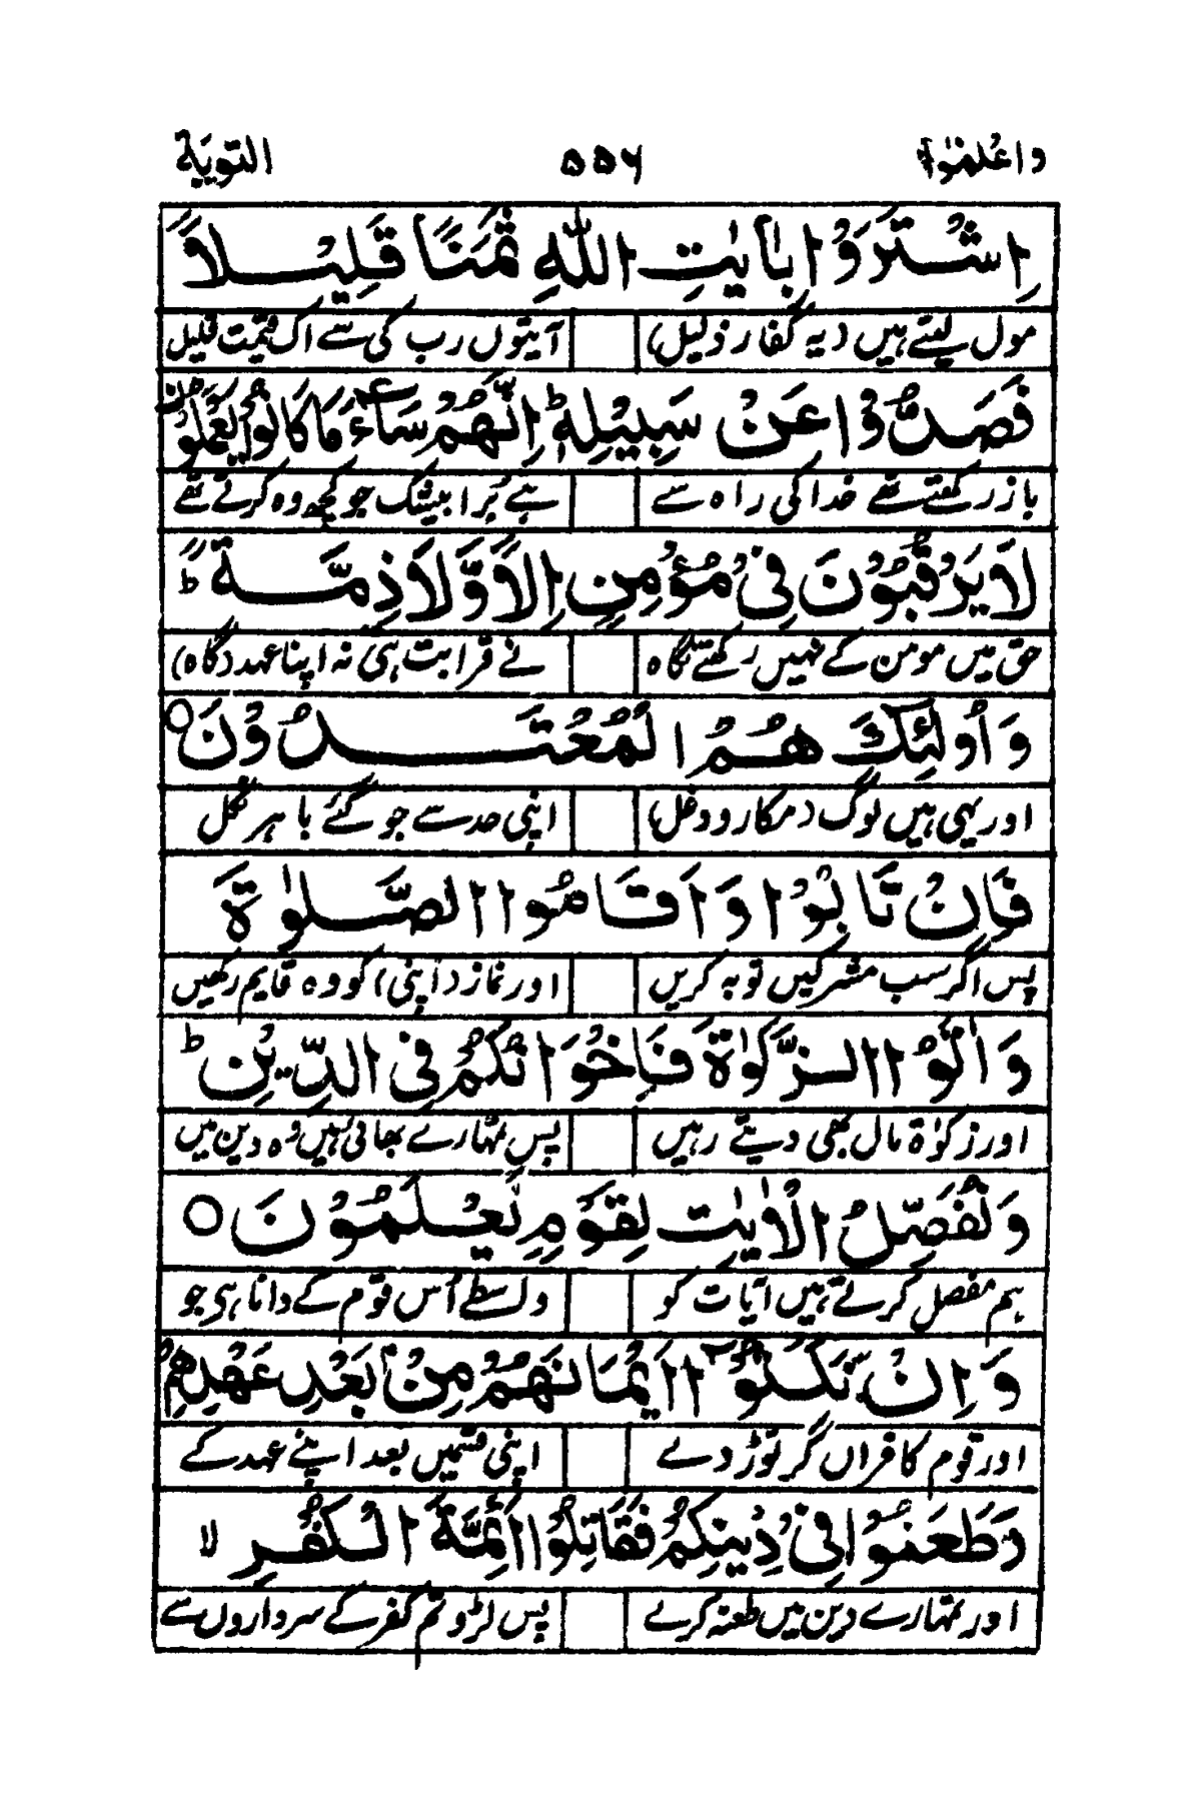 واعلموا ۵۵۶ التوبة
اِشْتَرَوْا بِاٰيٰتِ اللّٰهِ ثَمَنًا قَلِيْلًا
مول لیتے ہیں (یہ کفار ذلیل) آیتوں رب کی سے اک قیمت قلیل
فَصَدُّوْا عَنْ سَبِيْلِهٖ ؕ اِنَّهُمْ سَآءَ مَا كَانُوْا يَعْمَلُوْنَ
باز رکھتے تھے خدا کی راہ سے ہے بُرا بیشک جو کچھ وہ کرتے تھے
لَا يَرْقُبُوْنَ فِيْ مُؤْمِنٍ اِلًّا وَّلَا ذِمَّةً ؕ
حق میں مومن کے نہیں رکھتے نگاہ نے قرابت ہی نہ اپنا عہد (گاہ)
وَ اُولٰٓئِكَ هُمُ الْمُعْتَدُوْنَ ○
اور یہی ہیں لوگ (مکار و دغل) اپنی حد سے جو گئے باہر نکل
فَاِنْ تَابُوْا وَ اَقَامُوا الصَّلٰوةَ
پس اگر سب مشرکیں توبہ کریں اور نماز (اپنی) کو وہ قایم رکھیں
وَ اٰتَوُا الزَّكٰوةَ فَاِخْوَانُكُمْ فِى الدِّيْنِ ؕ
اور زکوٰۃ مال بھی دیتے رہیں پس تمہارے بھائی ہیں وہ دین میں
وَ نُفَصِّلُ الْاٰيٰتِ لِقَوْمٍ يَّعْلَمُوْنَ ○
ہم مفصل کرتے ہیں آیات کو واسطے اُس قوم کے دانا ہی جو
وَ اِنْ نَّكَثُوْٓا اَيْمَانَهُمْ مِنْۢ بَعْدِ عَهْدِهِمْ
اور قوم کافراں گر توڑ دے اپنی قسمیں بعد اپنے عہد کے
وَ طَعَنُوْا فِيْ دِيْنِكُمْ فَقَاتِلُوْٓا اَئِمَّةَ الْكُفْرِ ۙ
اور تمہارے دین میں طعنہ کرے پس لڑو تم کفر کے سرداروں سے